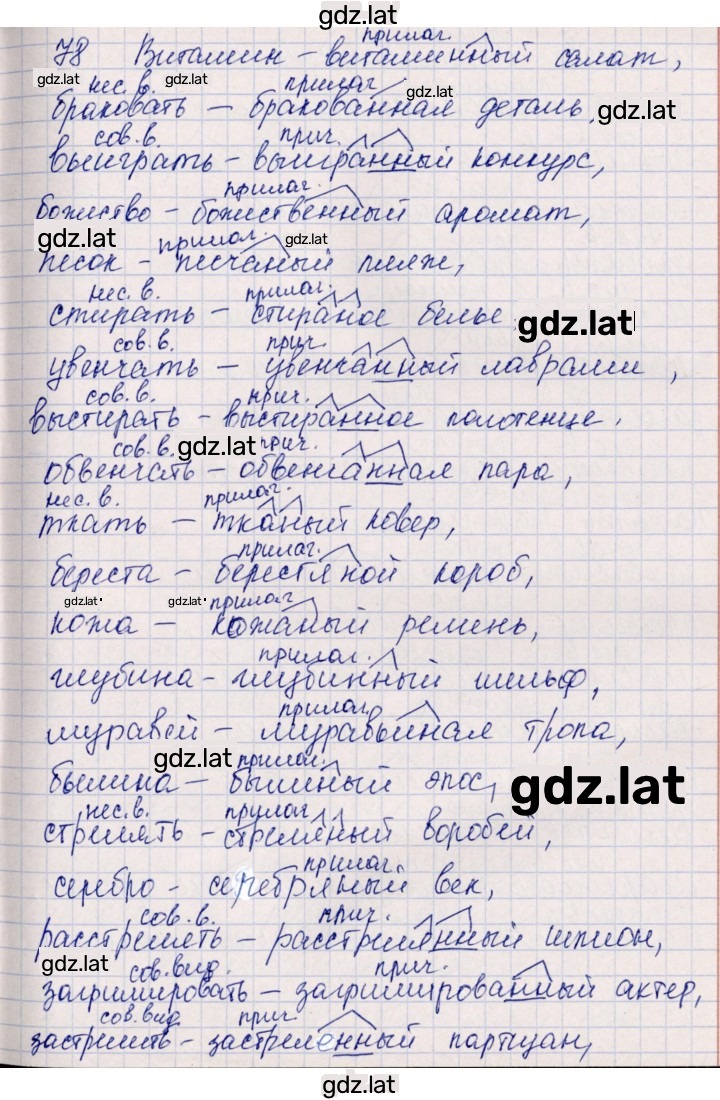 gdz.lat
прилаг.
78 Витамин – витаминный салат,
gdz.lat нес. в. gdz.lat прилаг
браковать – бракованная деталь, gdz.lat gdz.lat
сов. в. прич.
выиграть – выигранный конкурс,
прилаг.
божество – божественный аромат,
gdz.lat прилаг. gdz.lat
песок – песчаный пляж,
нес. в. прилаг.
стирать – стираное белье gdz.lat
сов. в. прич.
увенчать – увенчанный лаврами,
сов. в. прич.
выстирать – выстиранное полотенце,
сов. в. gdz.lat прич.
обвенчать – обвенчанная пара,
нес. в. прилаг.
ткать – тканый ковер,
прилаг.
береста – берестяной короб,
gdz.lat gdz.lat прилаг
кожа – кожаный ремень,
прилаг.
глубина – глубинный шельф,
прилаг.
муравей – муравьиная тропа,
gdz.lat прилаг.
былина – былинный эпос, gdz.lat
нес. в. прилаг
стрелять – стреляный воробей,
прилаг.
серебро – серебряный век,
сов. в. прич.
расстрелять – расстрелянный шпион,
gdz.lat сов. вид. прич.
загримировать – загримированный актер,
сов. вид. прич
застрелить – застреленный партизан,
gdz.lat